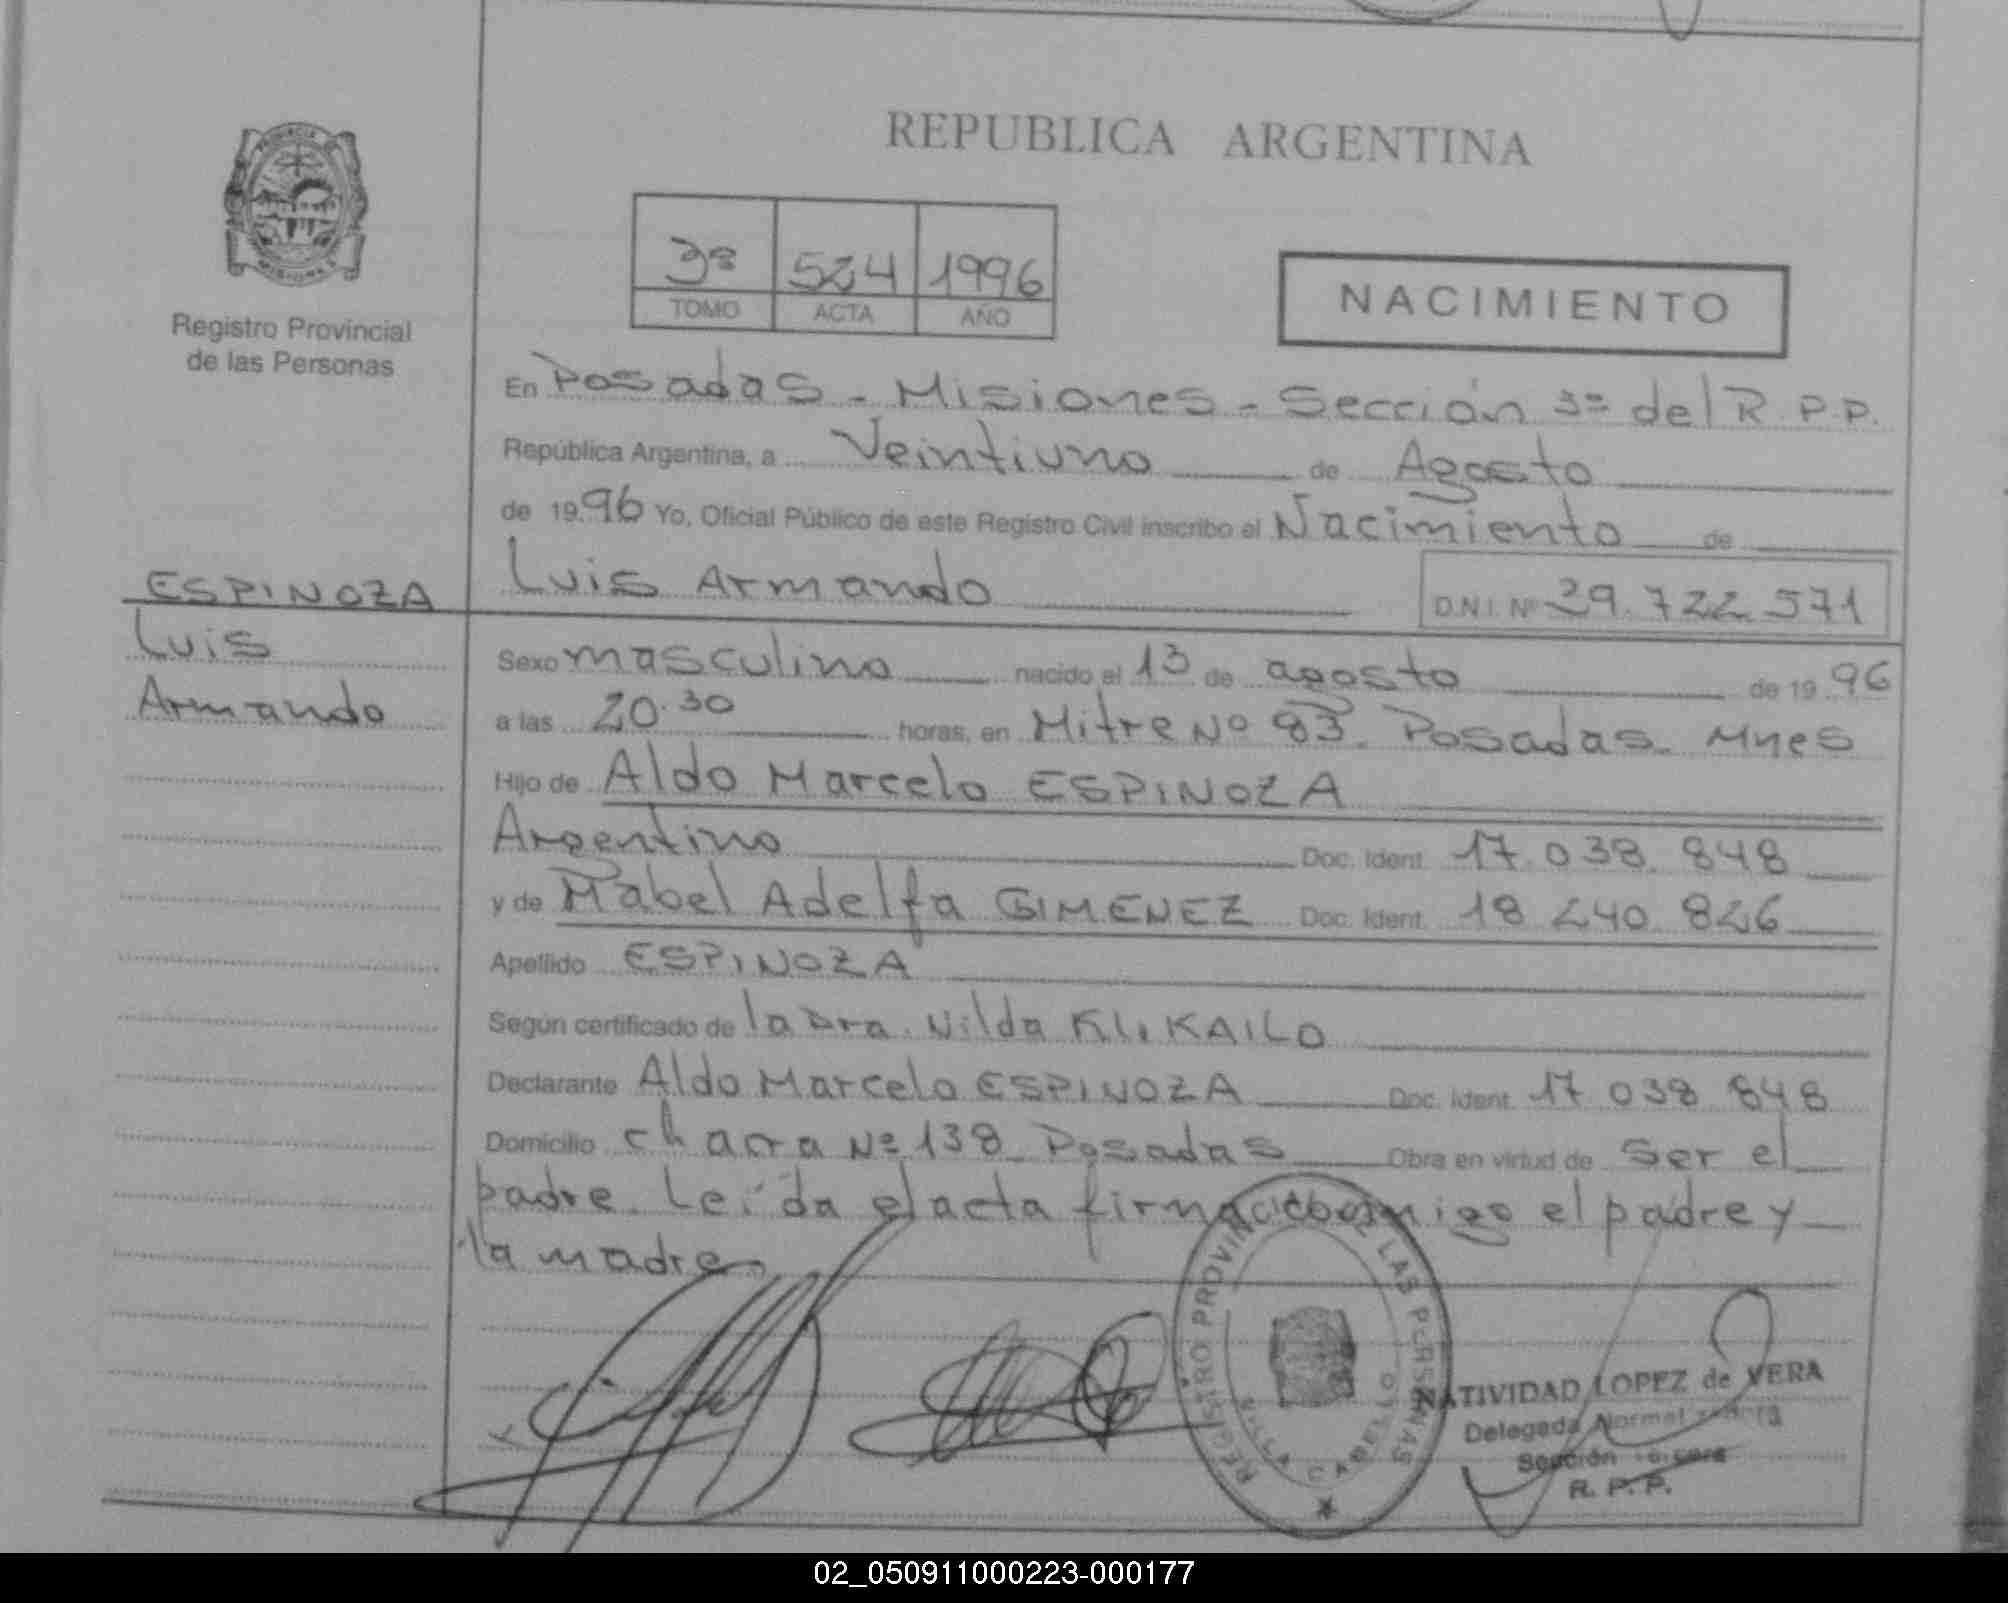 REPUBLICA ARGENTINA
3ª 524 1996
TOMO ACTA AÑO
NACIMIENTO
Registro Provincial
de las Personas
En Posadas - Misiones - Sección 3ª del R.P.P.
República Argentina, a Veintiuno de Agosto
de 1996 Yo, Oficial Público de este Registro Civil inscribo el Nacimiento de
ESPINOZA
Luis
Armando
Luis Armando D.N.I. Nº 39.722.571
Sexo masculino nacido el 13 de agosto de 1996
a las 20.30 horas, en Mitre Nº 83. Posadas. Mnes
Hijo de Aldo Marcelo ESPINOZA
Argentino Doc. Ident. 17.038.848
y de Mabel Adelfa GIMENEZ Doc. Ident. 18 240 826
Apellido ESPINOZA
Según certificado de la Dra. Nilda
Declarante Aldo Marcelo ESPINOZA Doc. Ident. 17 038 848
Domicilio chacra Nº 138 Posadas Obra en virtud de ser el
padre. Leída el acta firma conmigo el padre y
la madre.
REGISTRO PROVINCIAL DE LAS PERSONAS
VILLA CABELLO
NATIVIDAD LOPEZ de VERA
Delegada Normalizadora
Sección
R. P. P.
02_050911000223-000177